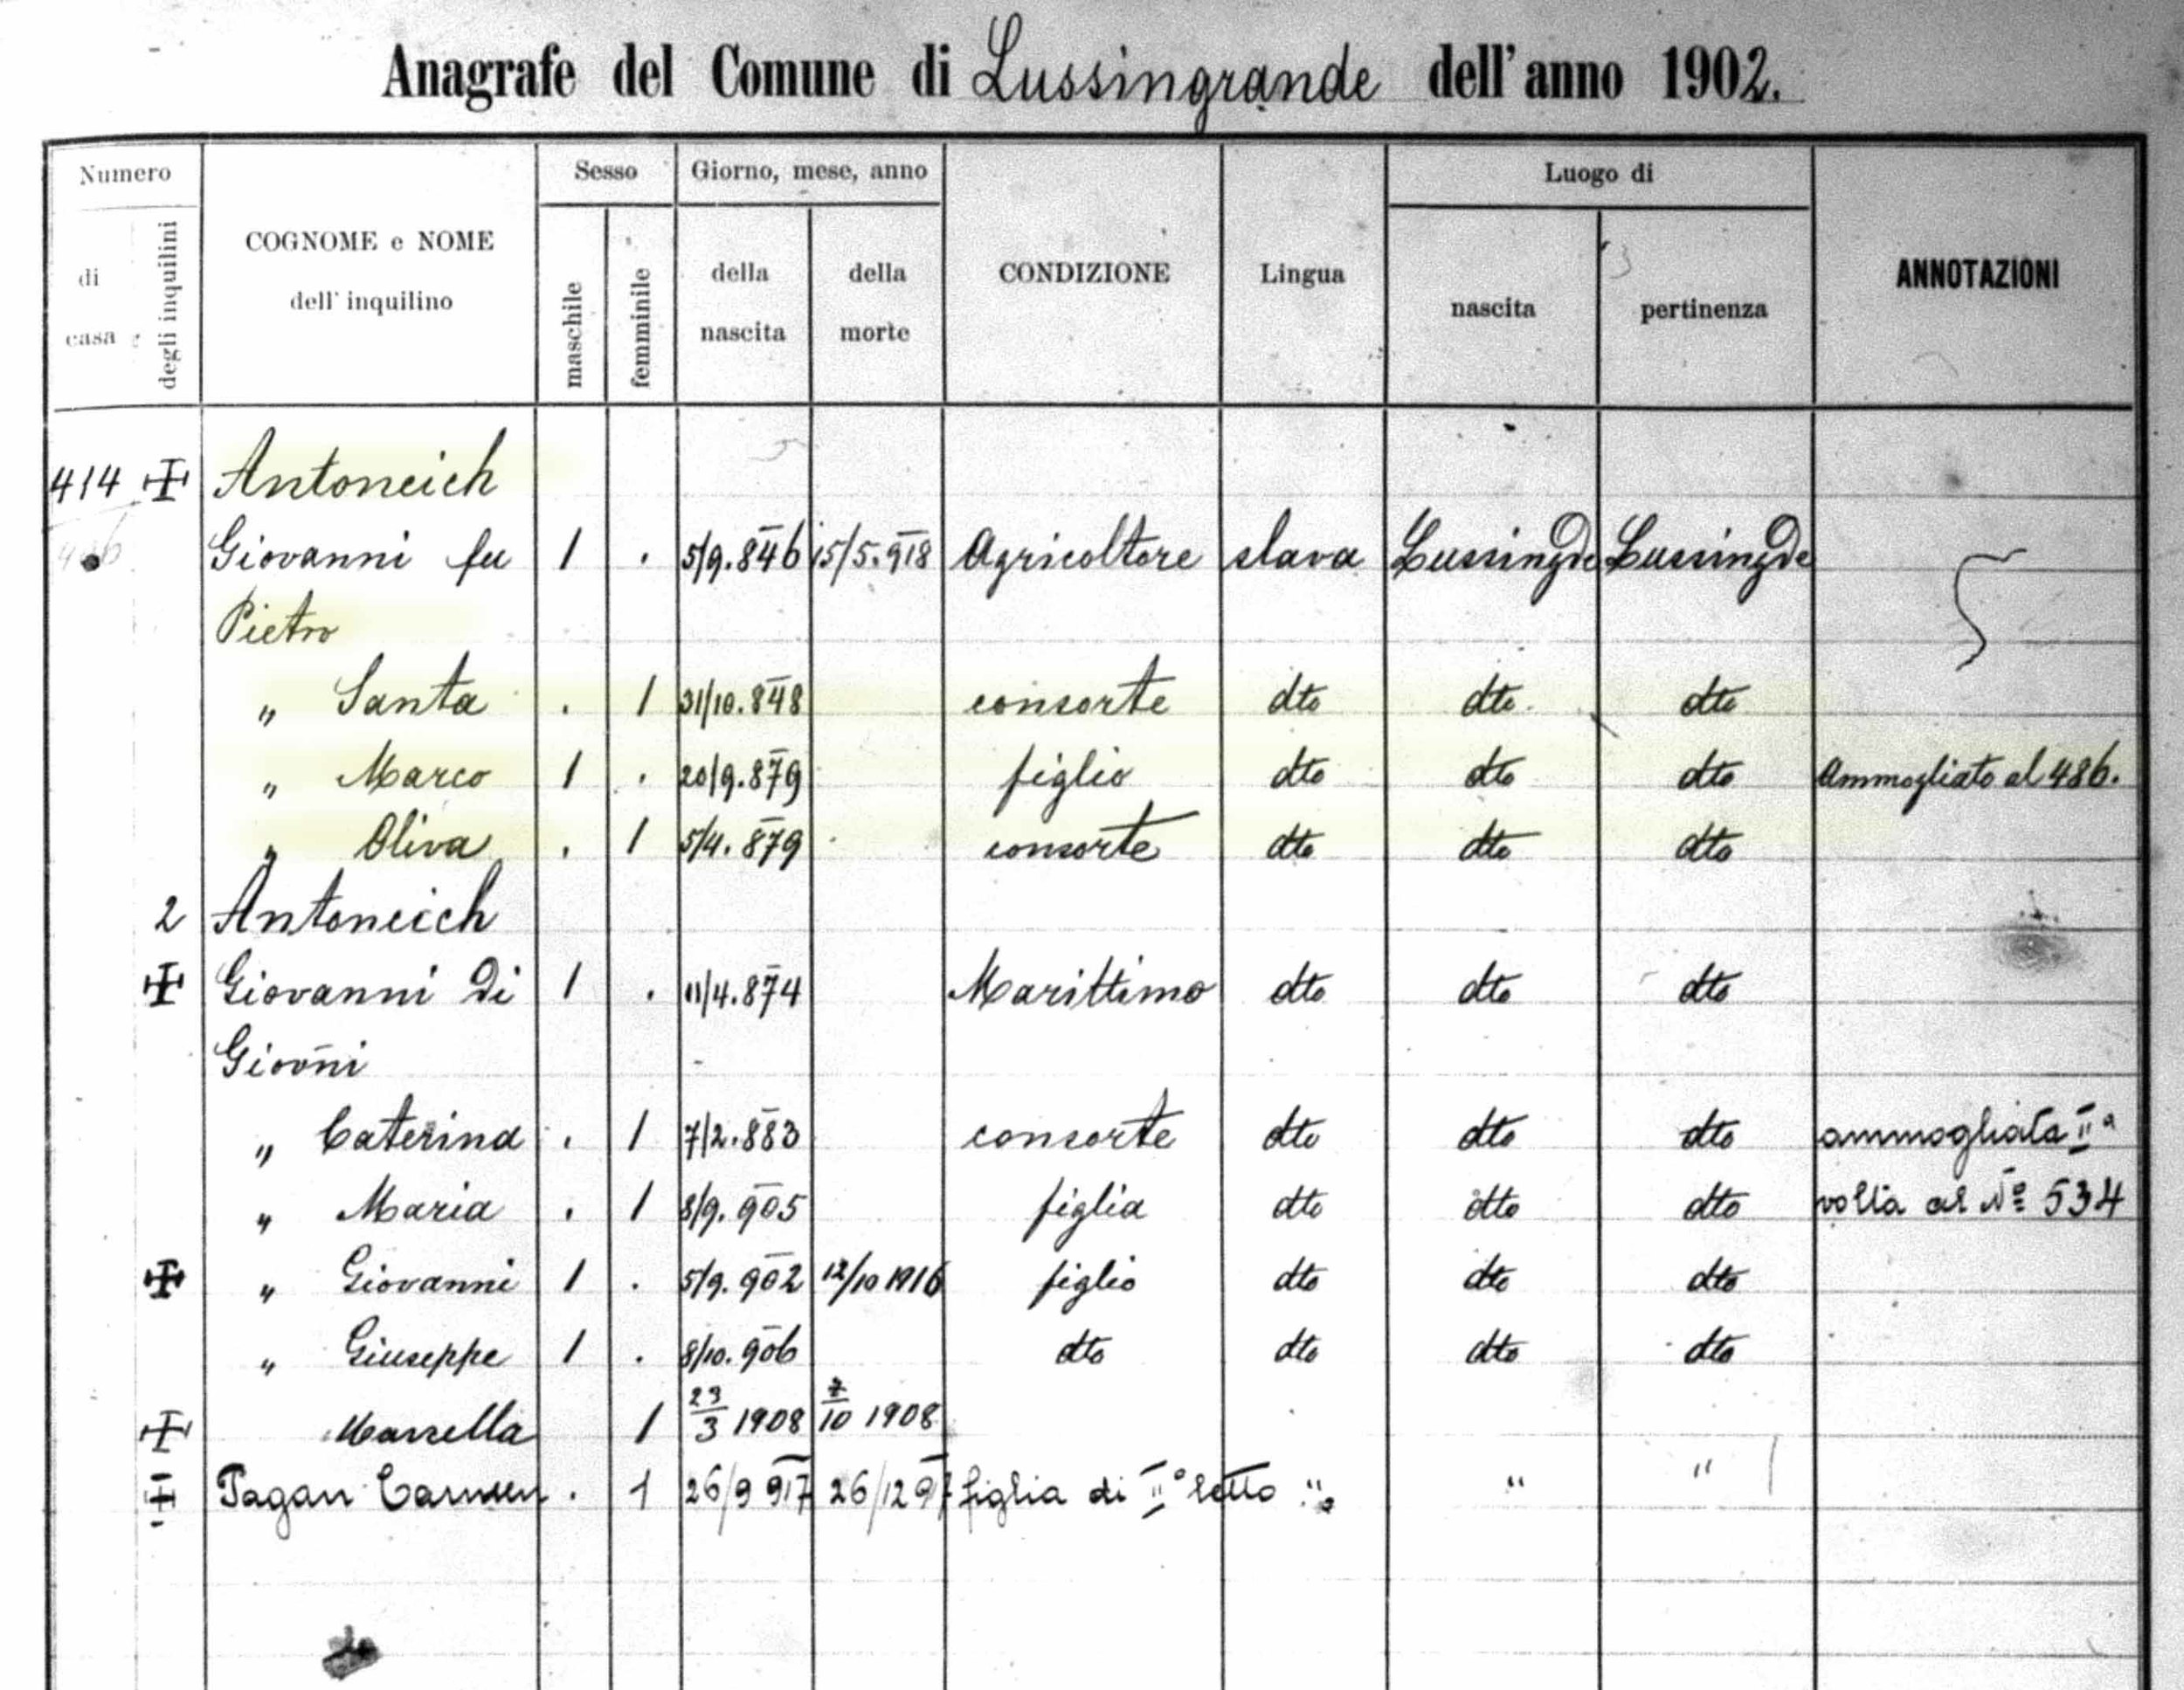 Anagrafe del Comune di Lussingrande dell'anno 1902.
Numero
di casa
degli inquilini
COGNOME e NOME
dell' inquilino
Sesso
maschile
femminile
Giorno, mese, anno
della nascita
della morte
CONDIZIONE
Lingua
Luogo di
nascita
pertinenza
ANNOTAZIONI
414 Antoncich
Giovanni fu 1 . 5/9.846 15/5.918 Agricoltore slava Lussingde Lussingde
Pietro
" Santa . 1 31/10.848 consorte dto dto dto
" Marco 1 . 20/9.879 figlio dto dto dto Ammogliato al 486.
" Oliva . 1 5/4.879 consorte dto dto dto
2 Antoncich
Giovanni di 1 . 11/4.874 Marittimo dto dto dto
Giovni
" Caterina . 1 7/2.883 consorte dto dto dto ammogliata IIa
" Maria . 1 8/9.905 figlia dto dto dto volta al No 534
" Giovanni 1 . 5/9.902 12/10 1916 figlio dto dto dto
" Giuseppe 1 . 8/10.906 dto dto dto dto
Marsella 1 23/3 1908 7/10 1908
Pagan Carmen . 1 26/9 917 26/12 917 figlia di IIo letto " " "